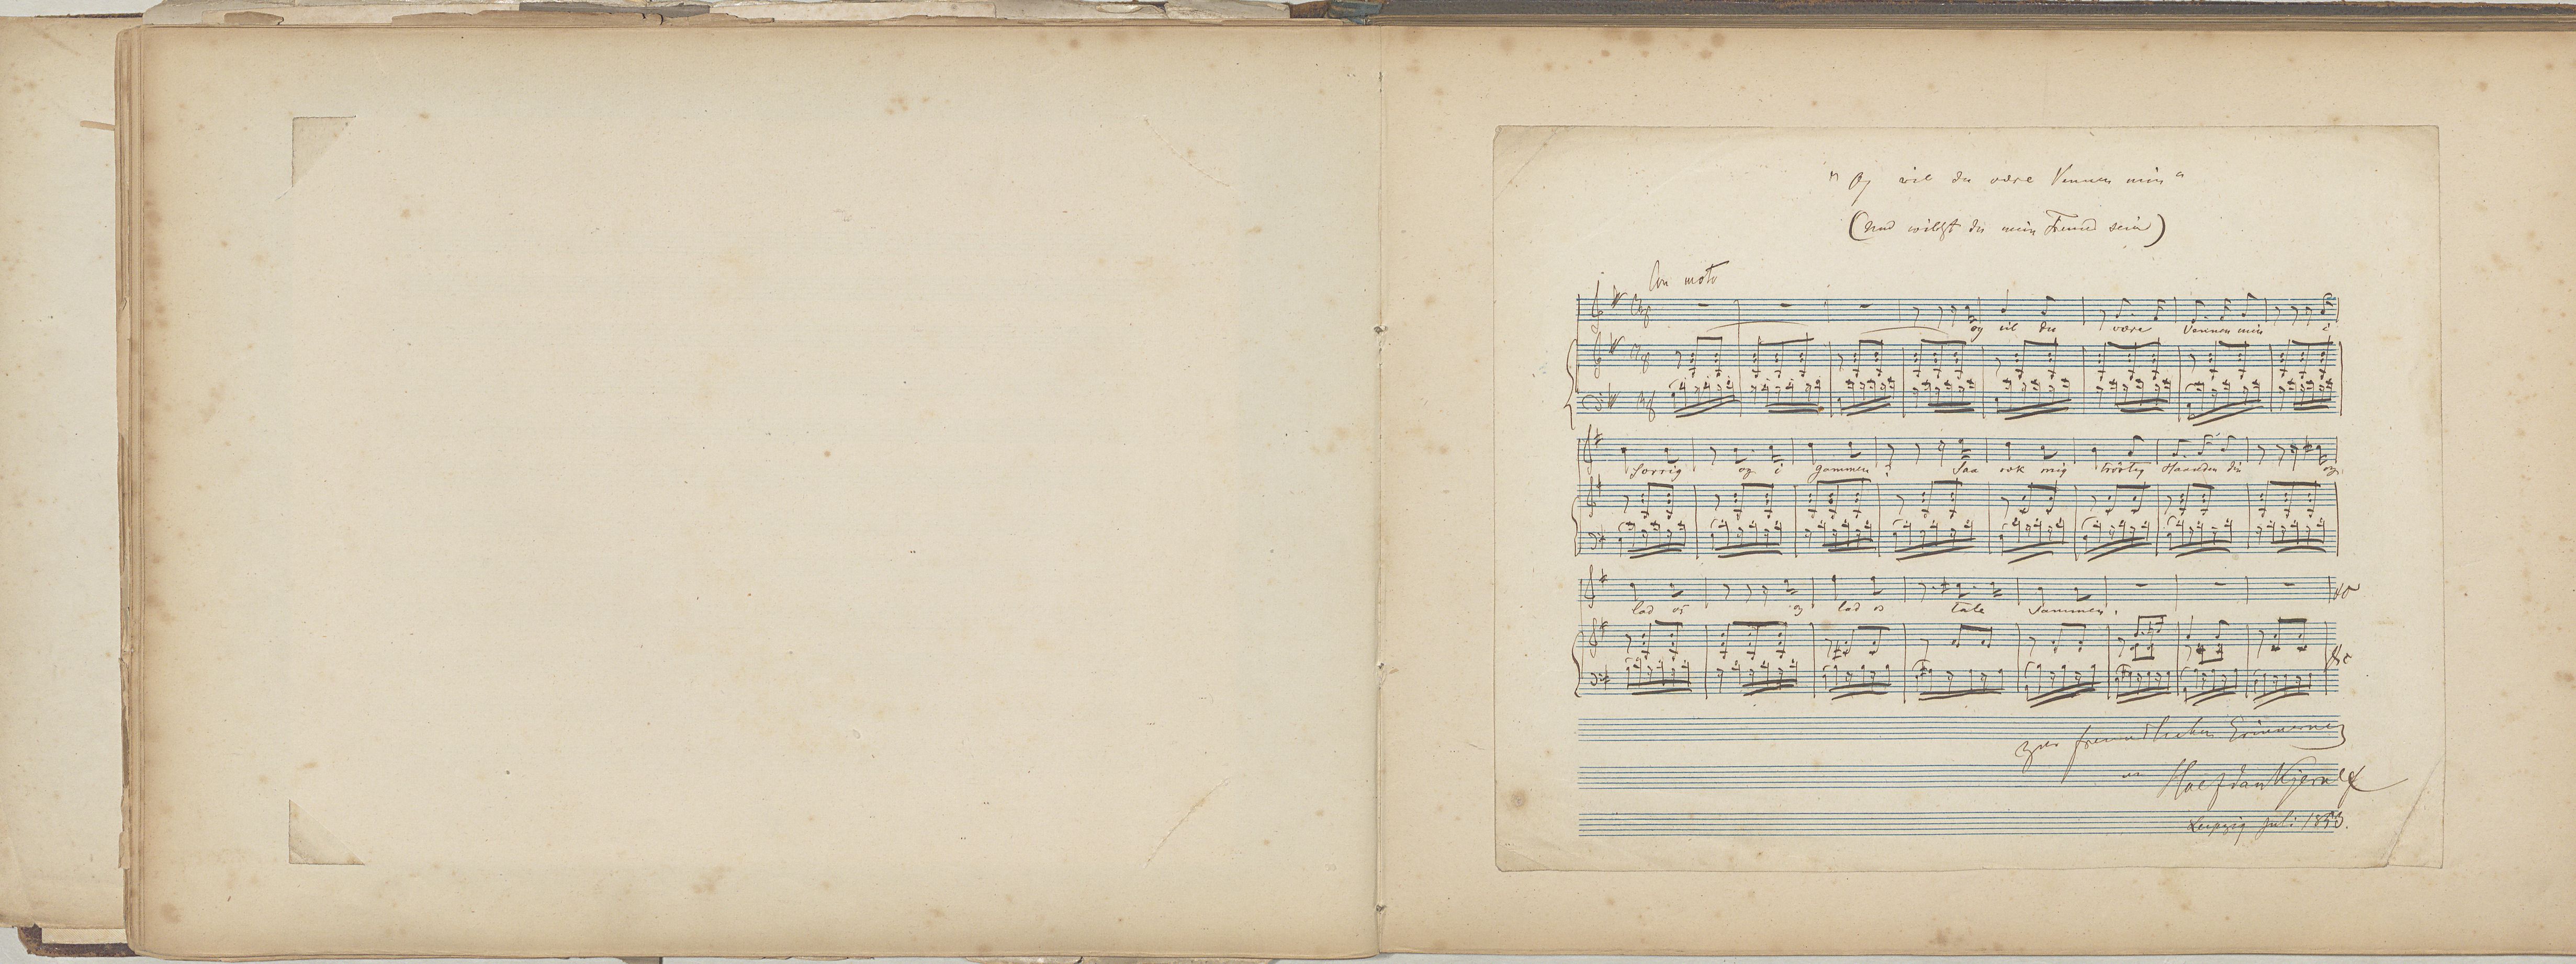 "Og vil du være Vennen min"
(Und willst du mein Freund sein)
Con moto
og vil du være Vennen min i
Sorrig og i Gammen; Saa ræk mig trøstig Haanden din og
lad os og lad os tale Sammen.
zur freundlichen Erinnerung
an Halfdan Kjerulf
Leipzig Juli 1850.